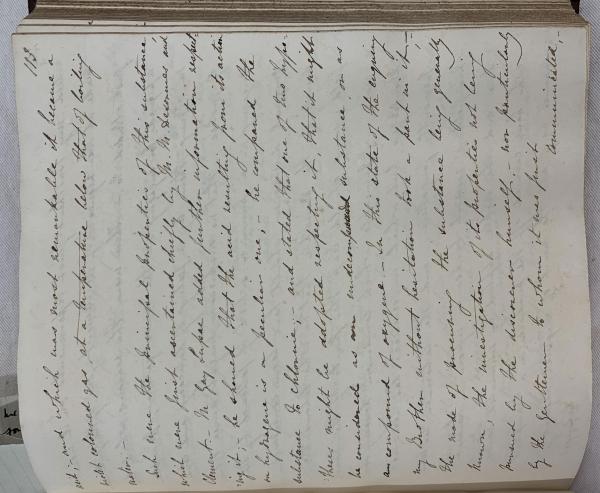 113
out; and which was most remarkable it became a
violet coloured gas at a temperature below that of boiling
water.—
Such were the principal properties of this substance
which were first ascertained chiefly by M. M. Desormes and
Clement. M. Gay Lussac added further information respect-
ing it;— he showed that the acid resulting from its action
on hydrogene is a peculiar one,— he compared the
substance to chlorine,— and stated that one of two hypo-
theses might be adopted respecting it, that it might
be considered as an undecompounded substance or as
a compound of oxygene.— In this state of the enquiry
my Brother without hesitation took a part in it,—
the mode of procuring the substance being generally
known, the investigation of its properties not being
pursued by the discoverer himself,— nor particularly
by the Gentlemen to whom it was first
communicated,—